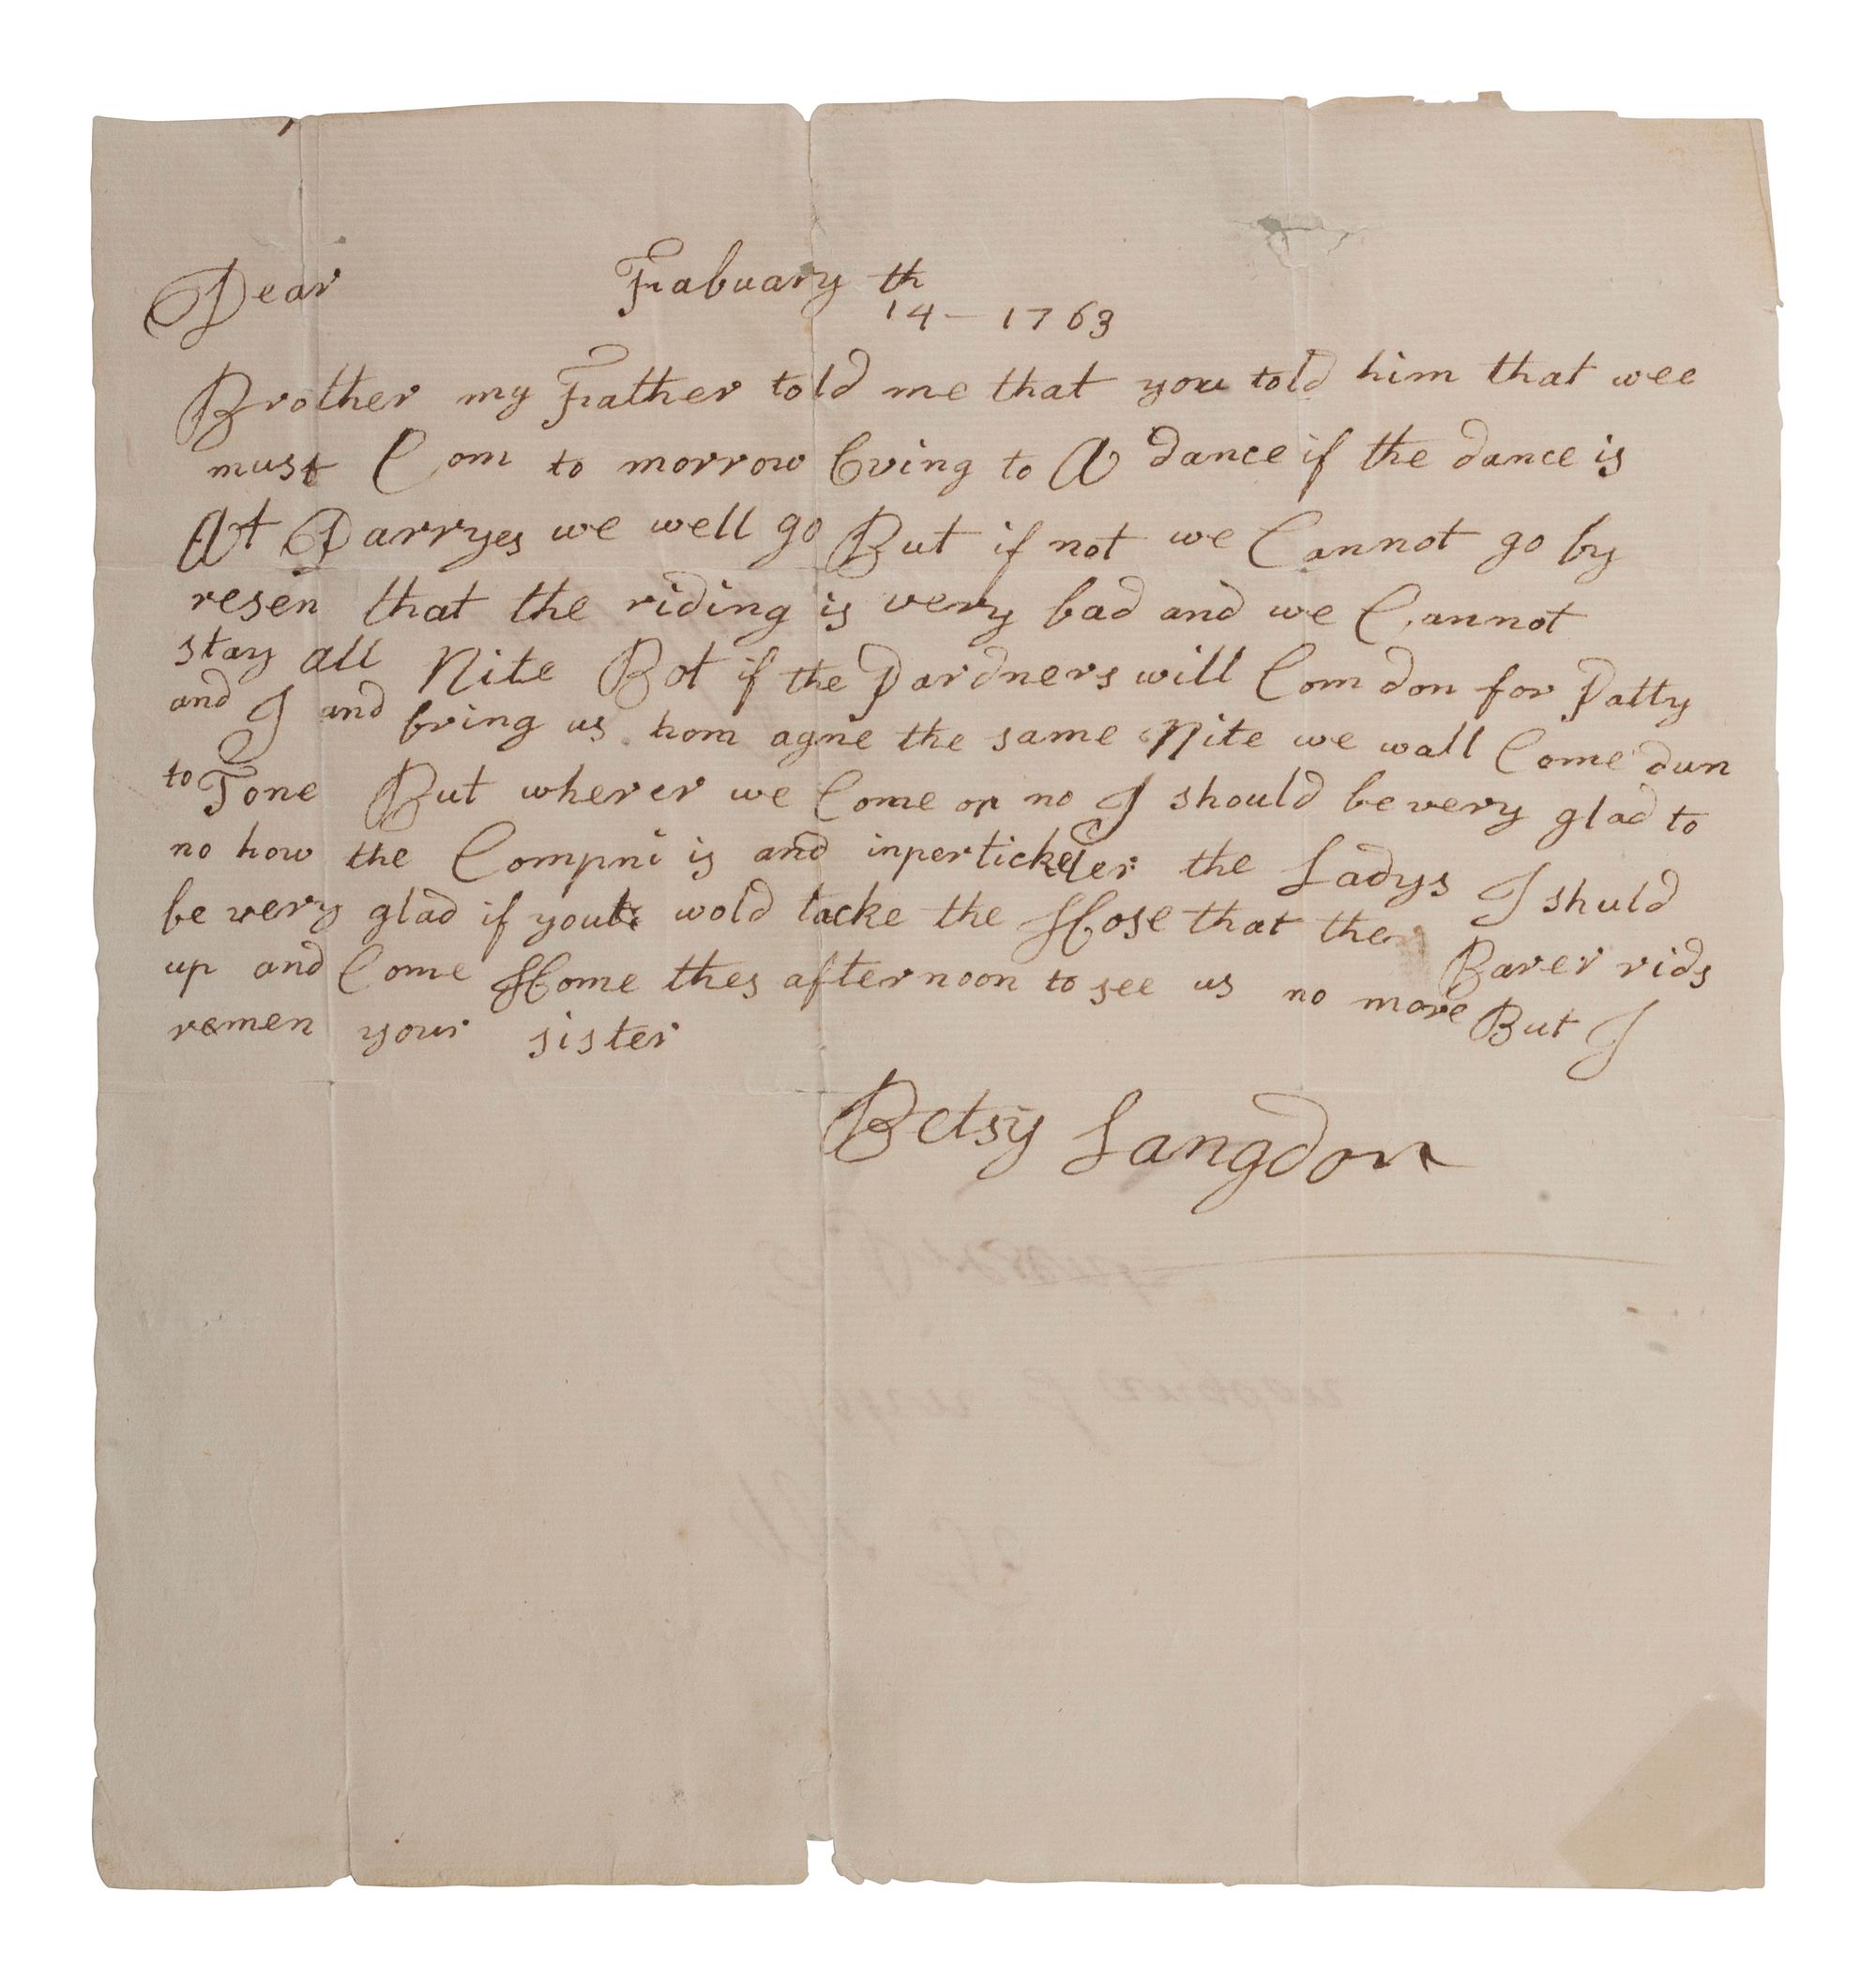 Dear Fabuary th
14 - 1763
Brother my Father told me that you told him that wee
must Com to morrow Eving to A dance if the dance is
At Parryes we well go But if not we Cannot go by
resen that the riding is very bad and we Cannot
stay all Nite Bot if the Pardners will Com don for Patty
and I and bring us hom agne the same Nite we wall Come dun
to Tone But wherer we Come or no I should be very glad to
no how the Compni is and inpertickeler the Ladys I shuld
be very glad if you wold tacke the Hose that the Barer rids
up and Come Home thes afternoon to see us no more But I
remen your sister
Betsy Langdon